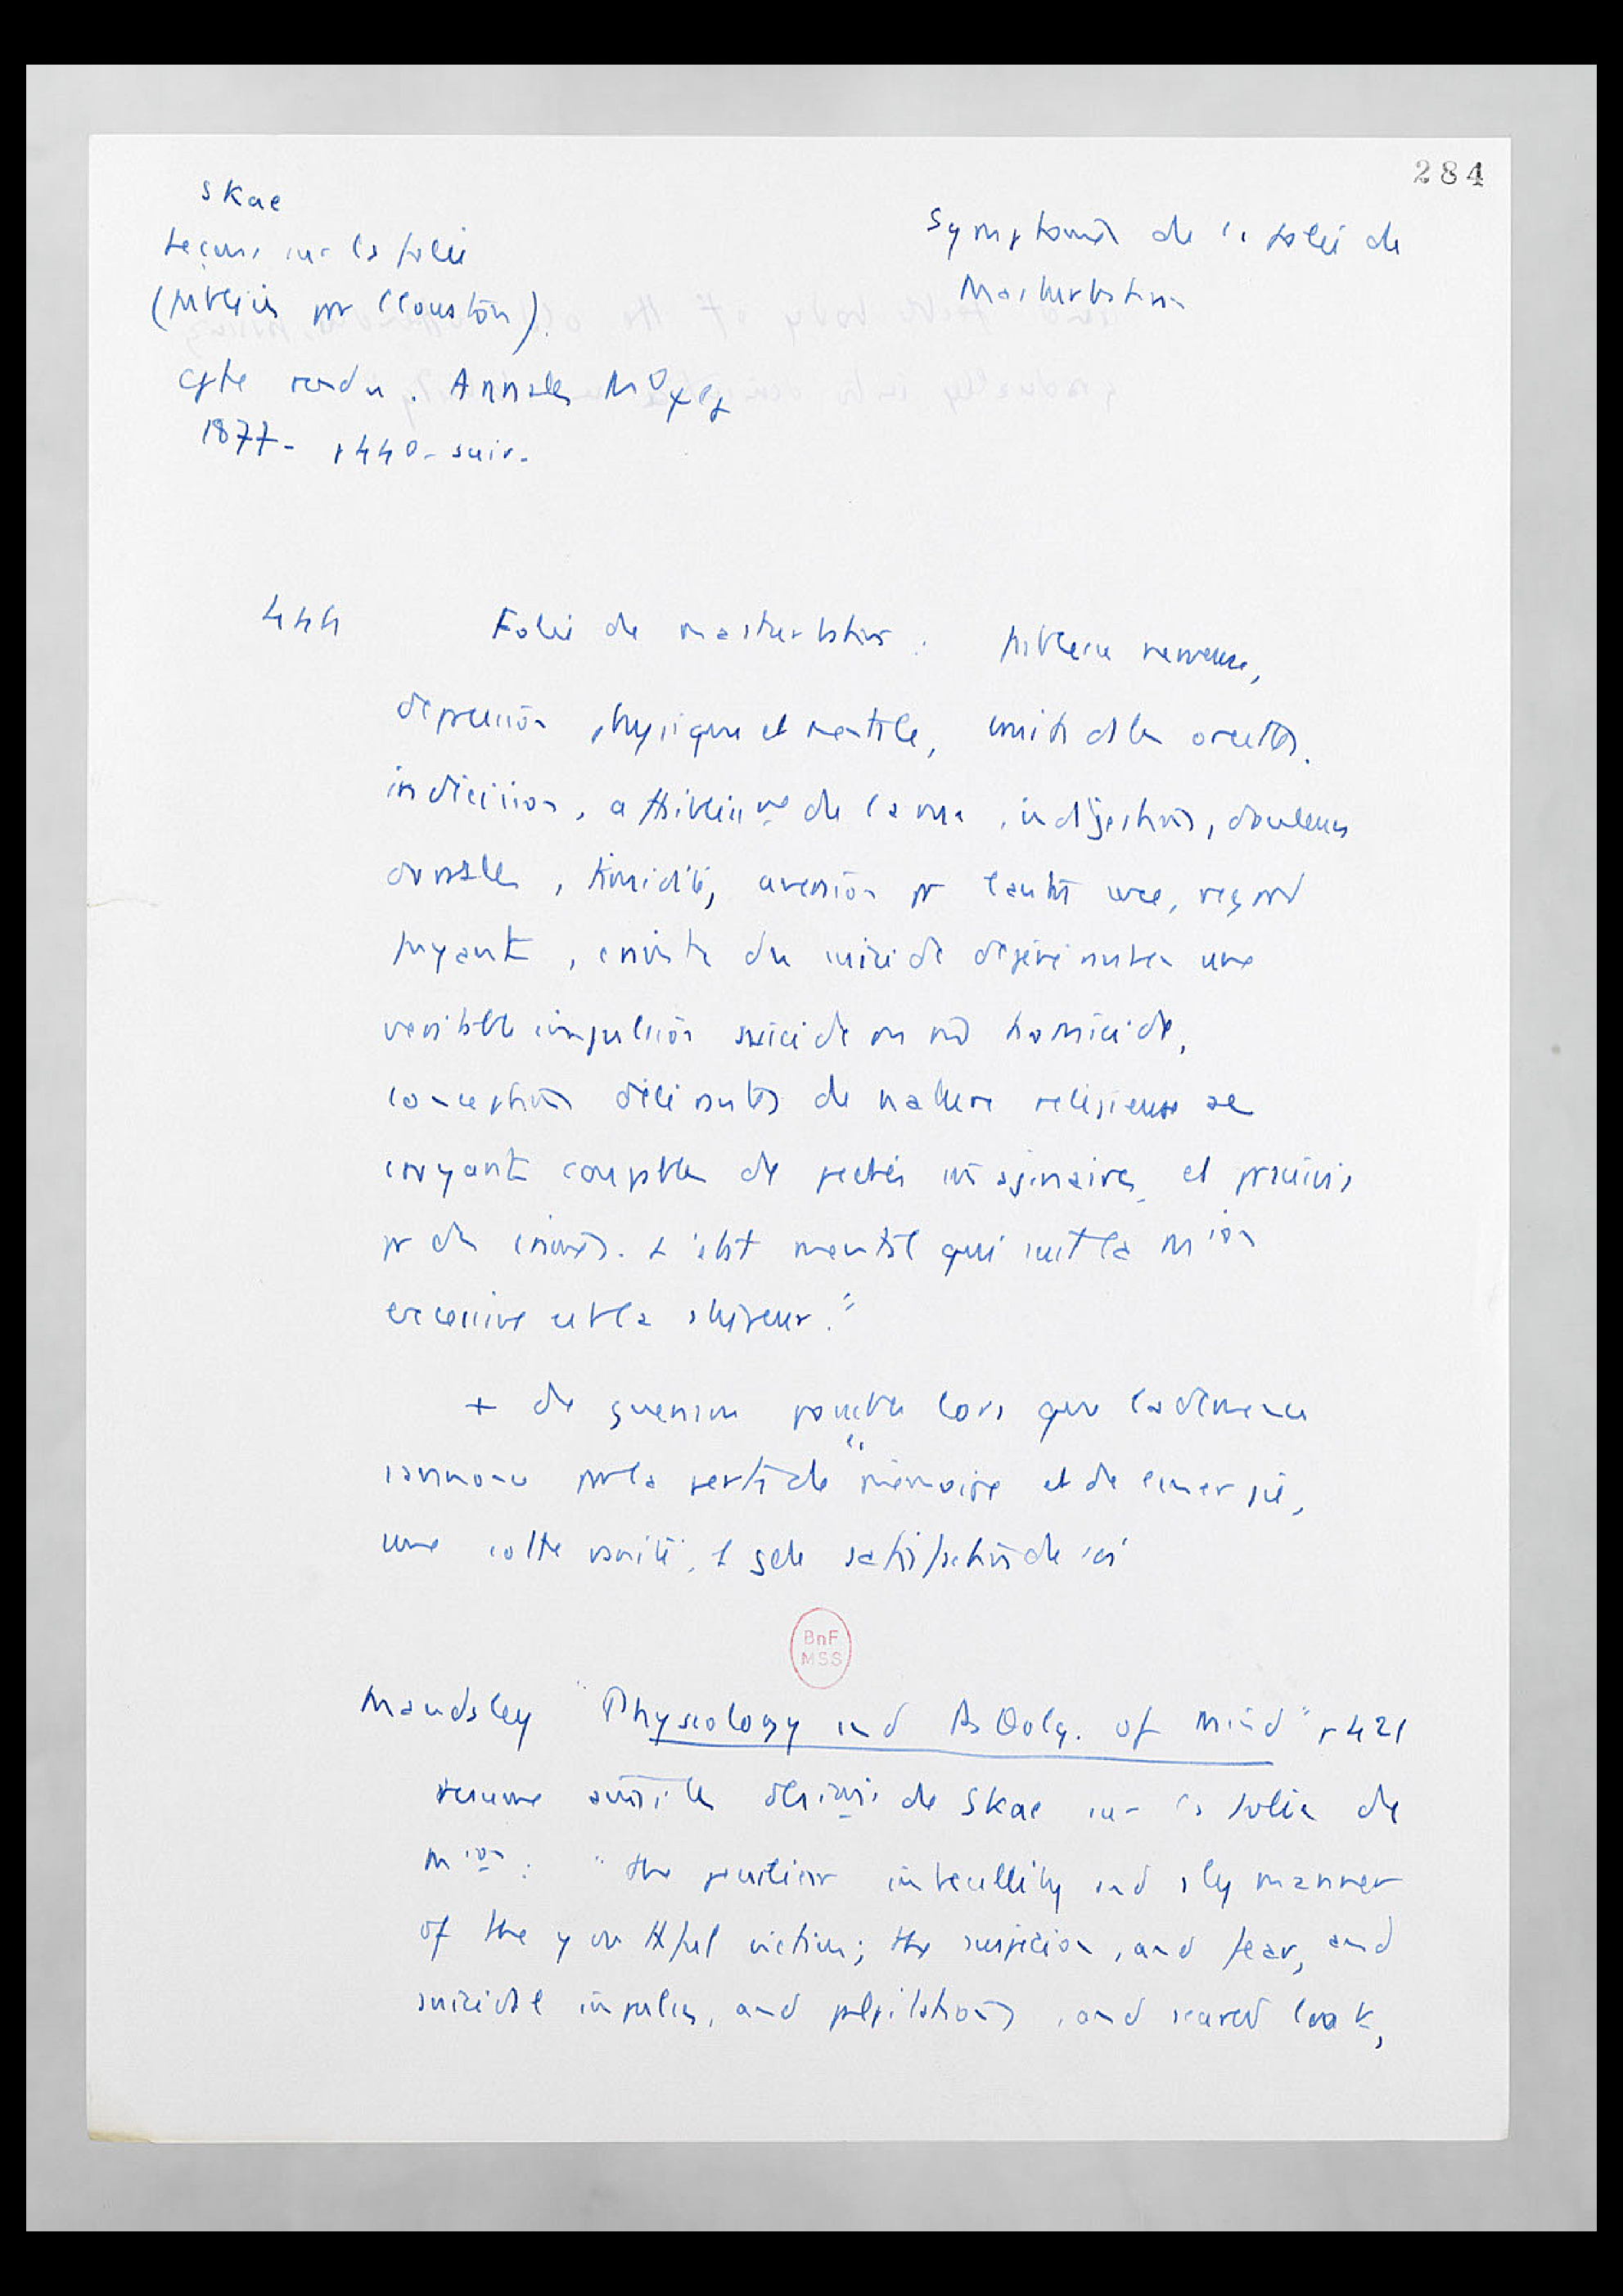 284
Skae
Leçons sur la folie
(publiées pr Clouston).
Cpte rendu. Annales
1877- p 440- suiv.
Symptômes de la folie de
Masturbation
444
Folie de masturbation : faiblesse nerveuse,
dépression physique et mentale, bruits ds les oreilles.
indécision, affaiblissmt de la vue, indigestions, douleurs
dorsales, timidité, aversion pr l'autre sexe, regard
fuyant, crainte du suicide dégénérant en une
véritable impulsion suicide ou md homicide,
conceptions délirantes de nature religieuse se
croyant coupables de péchés imaginaires et poursuivis
pr des crimes. L'état mental qui suit la mion
excessive est la stupeur."
+ de guérison possible lors que la démence
s'annonce pr la perte de la mémoire et de l'énergie,
une sotte vanité, 1 gde satisfaction de soi
BnF
MSS
Maudsley "Physiology and of Mind" p 421
résume aussi les de Skae sur la folie de
mion : "the peculiar imbecillity and sly manner
of the youthful victim; the suspicion, and fear, and
suicidal impulses, and palpitations, and scared look,